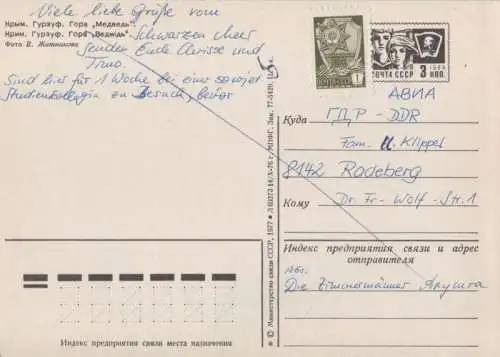 Viele liebe Grüße vom
Крым. Гурзуф. Гора „Медведь"
Крим. Гурзуф. Гора „Ведмідь"
Schwarzen Meer
Фото В. Житникова
senden Euch Clarisse und
Timo.
Sind hier für 1 Woche bei einer sowjet.
Studienkollegin zu Besuch, bevor
1
ПОЧТА СССР 3 КОП.
1966
АВИА
Куда ГДР - DDR
Fam. U. Klippel
8142 Radeberg
Кому Dr. Fr.-Wolf-Str. 1
Индекс предприятия связи и адрес
отправителя
Abs.
Die Zimmermänner Алушта
Индекс предприятия связи места назначения
© Министерство связи СССР, 1977
МПФГ. Зак. 77-5420.